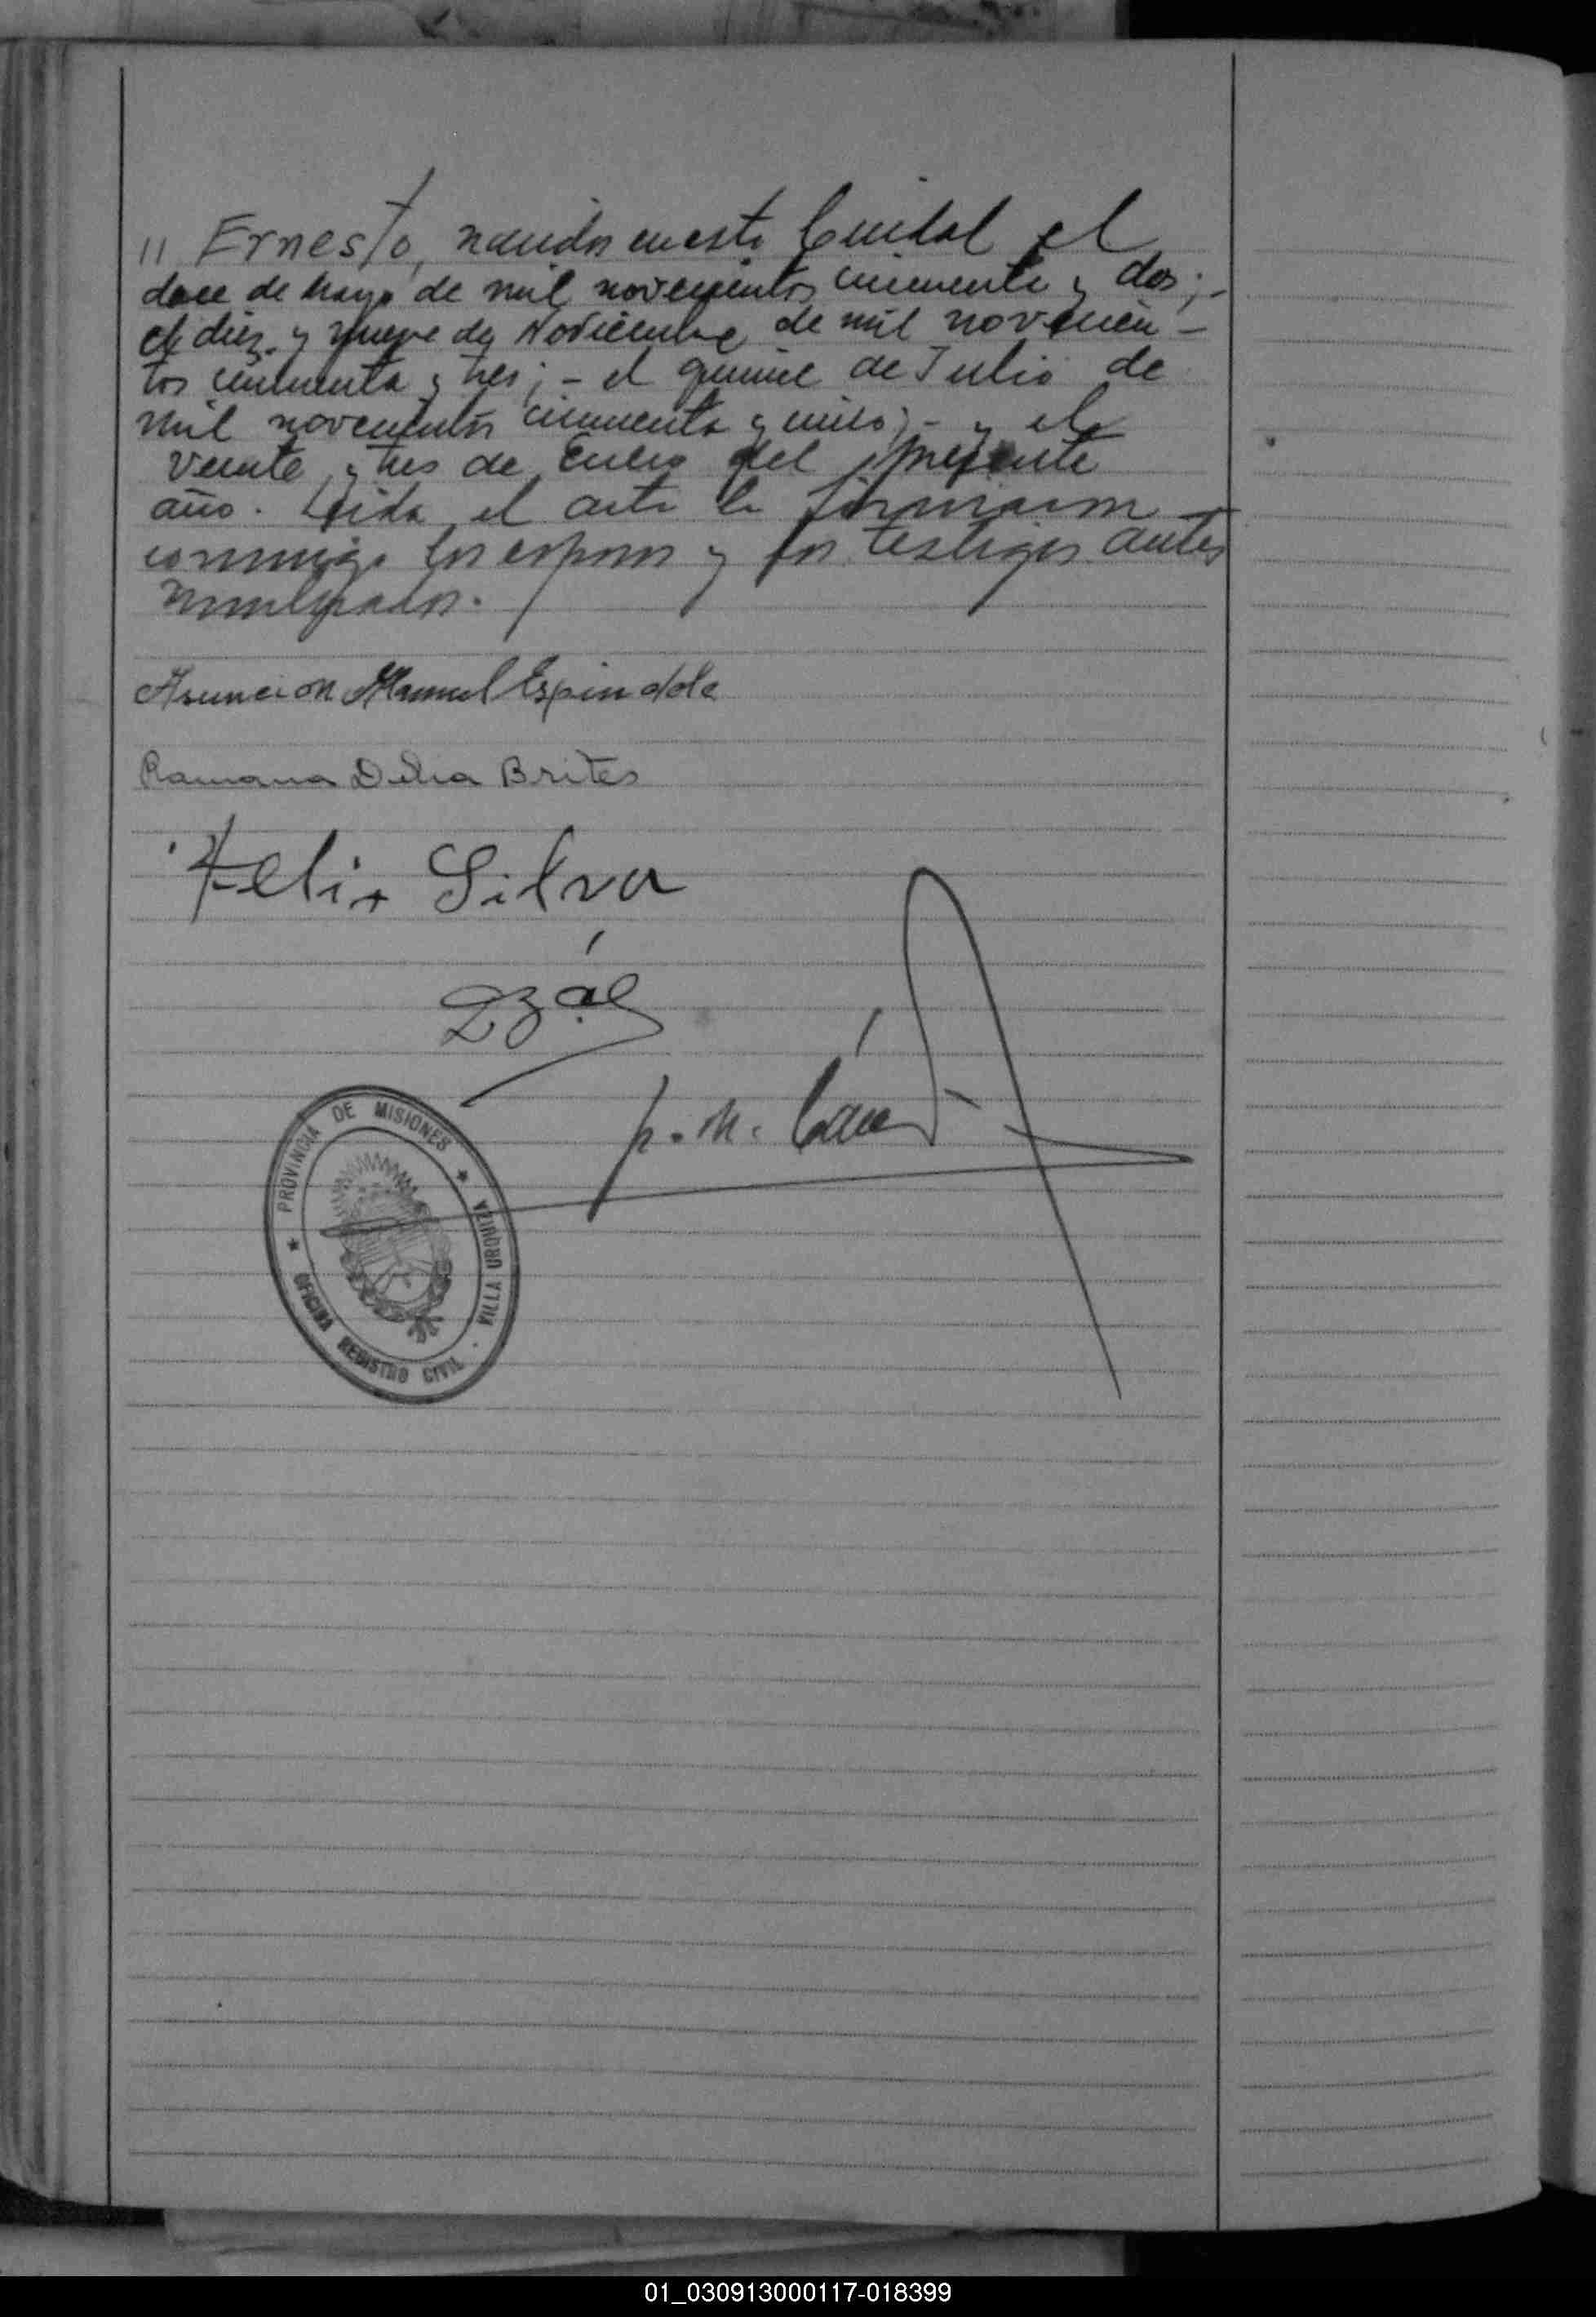 11 Ernesto, nacidos en esta Capital el
doce de Mayo de mil novecientos cincuenta y dos;-
el diez y nueve de Noviembre de mil novecien-
tos cincuenta y tres;- el quince de Julio de
mil novecientos cincuenta y cinco;- y el
veinte y tres de Enero del presente
año. Leida el acta la firmaron
conmigo los esposos y los testigos antes
nombrados.
Asuncion Manuel Espindola
Ramona Delia Brites
Felix Silva
PROVINCIA DE MISIONES
VILLA URQUIZA
OFICINA REGISTRO CIVIL
01_030913000117-018399